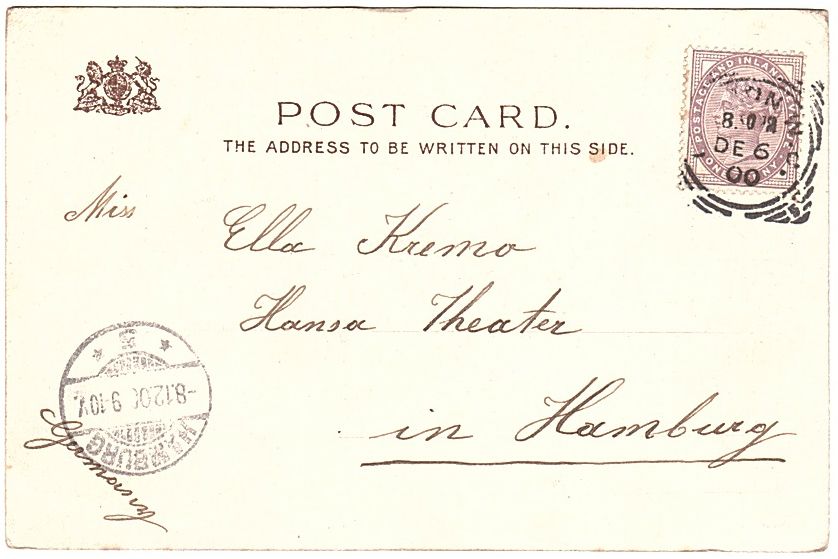 POST CARD.
THE ADDRESS TO BE WRITTEN ON THIS SIDE.
POSTAGE AND INLAND
ONE PENNY
W.C.
8.30 PM
DE 6
00
Miss
Ella Kremo
Hansa Theater
in Hamburg
Germany
* *
-8.12.00 9-10V.
HAMBURG